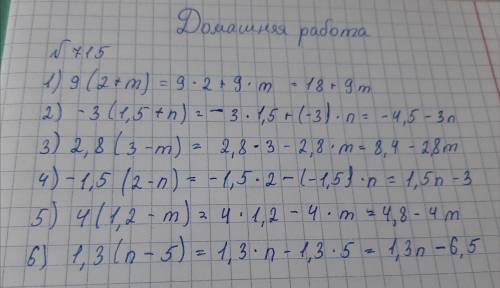 Домашняя работа
№715
1) 9(2+m) = 9·2+9·m = 18+9m
2) -3(1,5+n) = -3·1,5+(-3)·n = -4,5-3n
3) 2,8(3-m) = 2,8·3-2,8·m = 8,4-28m
4) -1,5(2-n) = -1,5·2-(-1,5)·n = 1,5n-3
5) 4(1,2-m) = 4·1,2-4·m = 4,8-4m
6) 1,3(n-5) = 1,3·n-1,3·5 = 1,3n-6,5